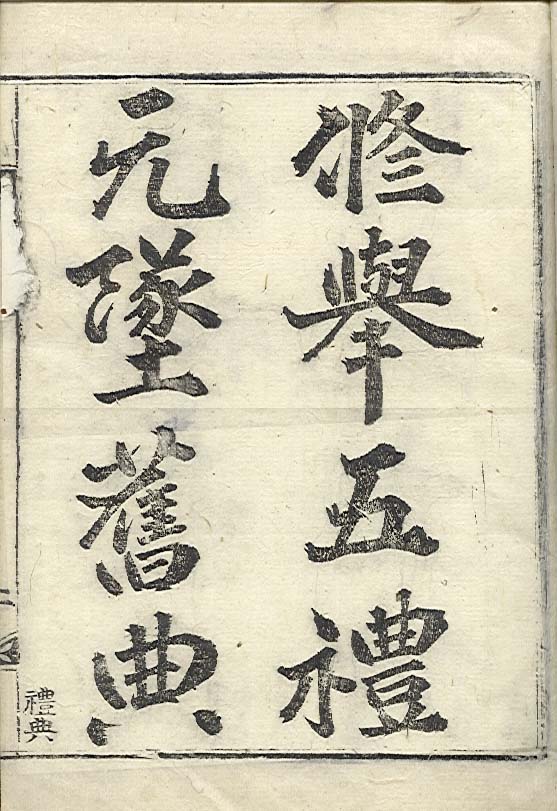 修舉五禮
元墜舊典
禮典